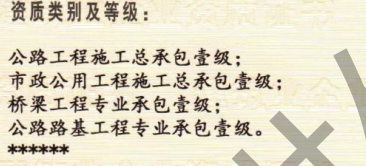 资质类别及等级：
公路工程施工总承包壹级；
市政公用工程施工总承包壹级；
桥梁工程专业承包壹级；
公路路基工程专业承包壹级。
******